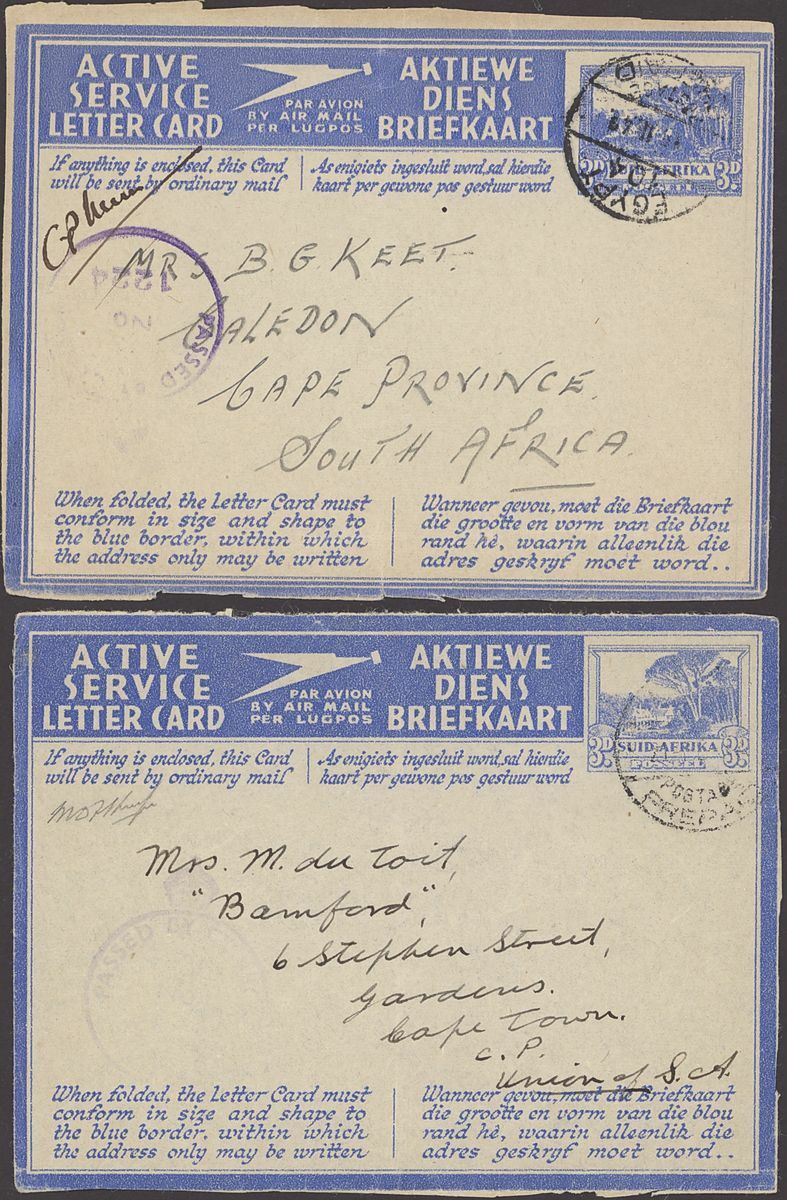 ACTIVE
SERVICE
LETTER CARD
PAR AVION
BY AIR MAIL
PER LUGPOS
AKTIEWE
DIENS
BRIEFKAART
If anything is enclosed, this Card
will be sent by ordinary mail
As enigiets ingesluit word, sal hierdie
kaart per gewone pos gestuur word
3D AFRIKA 3D
EGYPT
PASSED
NO
1224
MRS B. G. KEET.
CALEDON
CAPE PROVINCE.
SOUTH AFRICA.
When folded, the Letter Card must
conform in size and shape to
the blue border, within which
the address only may be written
Wanneer gevou, moet die Briefkaart
die grootte en vorm van die blou
rand hê, waarin alleenlik die
adres geskryf moet word..
ACTIVE
SERVICE
LETTER CARD
PAR AVION
BY AIR MAIL
PER LUGPOS
AKTIEWE
DIENS
BRIEFKAART
If anything is enclosed, this Card
will be sent by ordinary mail
As enigiets ingesluit word, sal hierdie
kaart per gewone pos gestuur word
3D SUID AFRIKA 3D
POSSEEL
PASSED BY
Mrs. M. du Toit,
"Bamford",
6 Stephen Street,
Gardens.
Cape Town.
C. P.
Union of S. A.
When folded, the Letter Card must
conform in size and shape to
the blue border, within which
the address only may be written
Wanneer gevou, moet die Briefkaart
die grootte en vorm van die blou
rand hê, waarin alleenlik die
adres geskryf moet word..